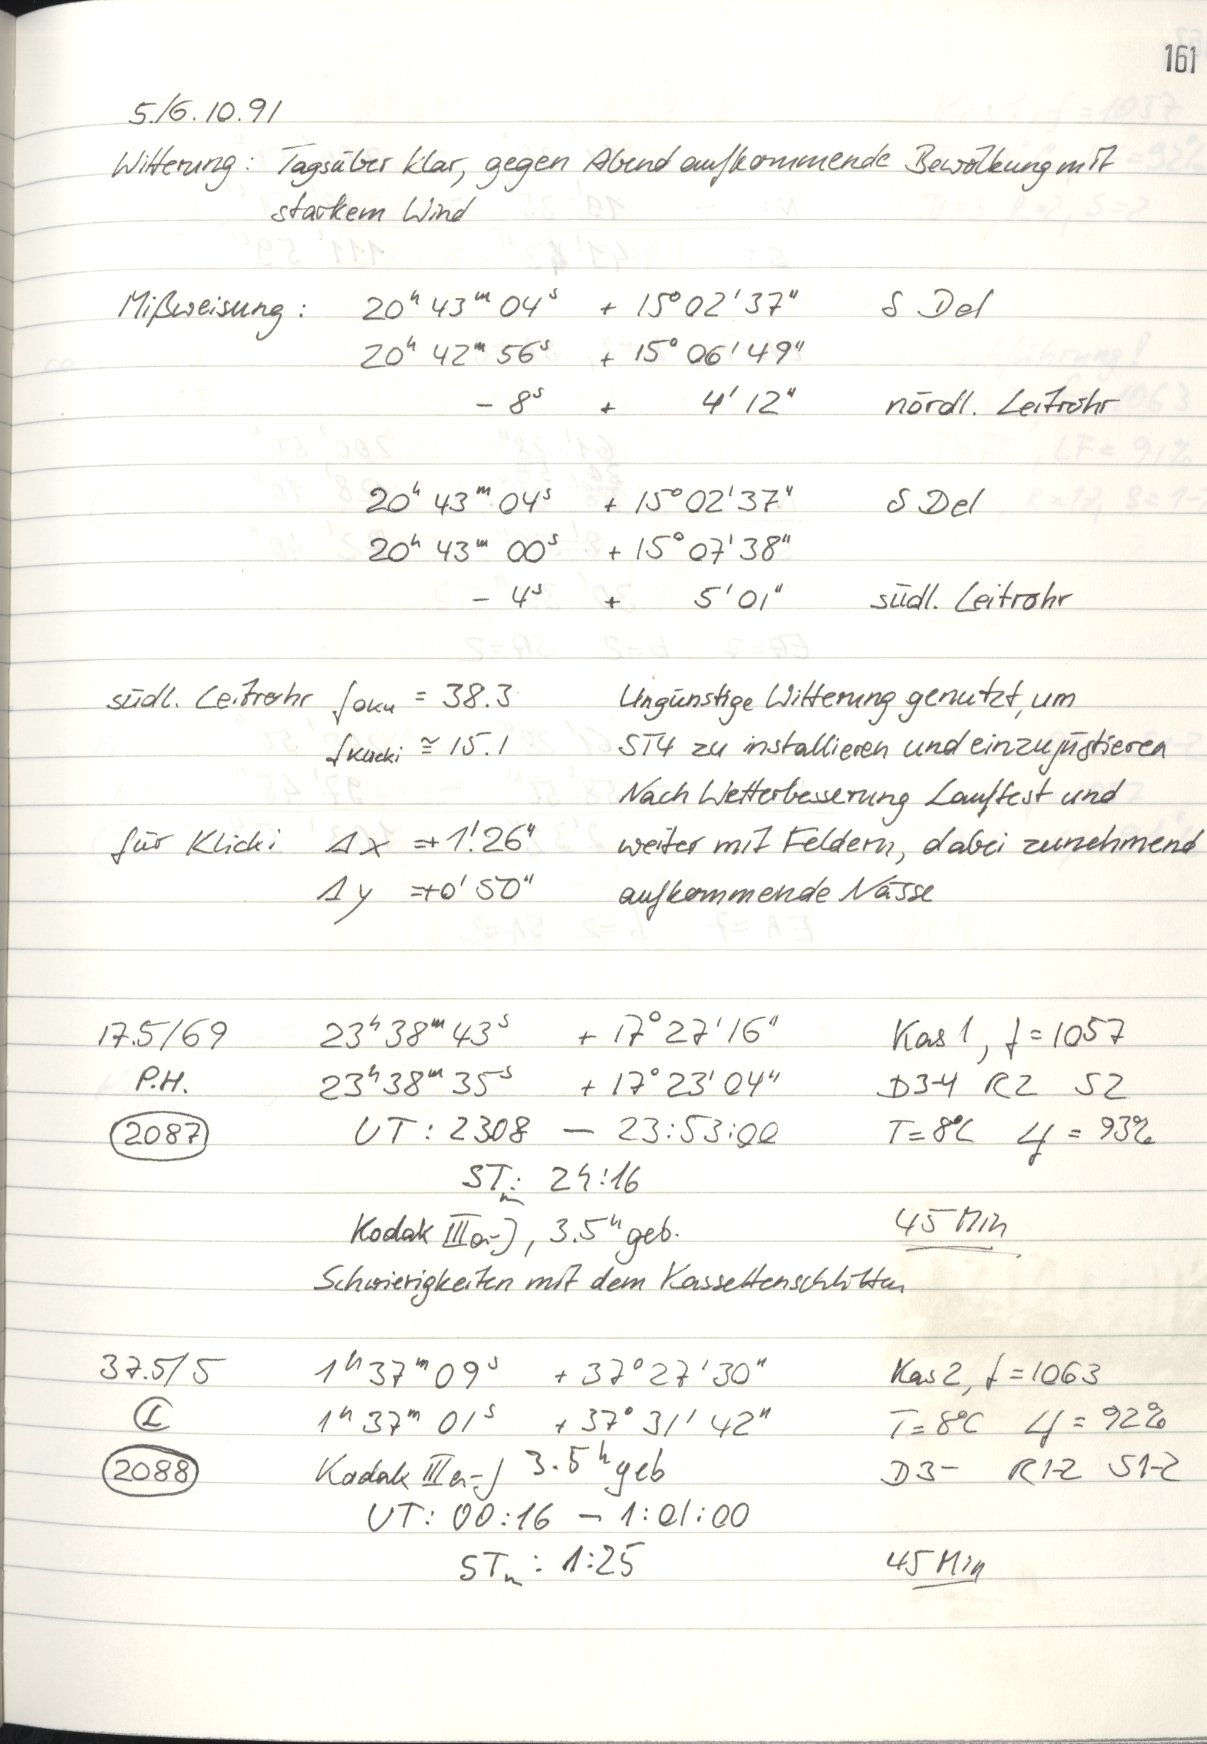 161
5./6.10.91
Witterung: Tagsüber klar, gegen Abend aufkommende Bewölkung mit
starkem Wind
Mißweisung: 20ʰ 43ᵐ 04ˢ + 15° 02' 37" δ Del
20ʰ 42ᵐ 56ˢ + 15° 06' 49"
- 8ˢ + 4' 12" nördl. Leitrohr
20ʰ 43ᵐ 04ˢ + 15° 02' 37" δ Del
20ʰ 43ᵐ 00ˢ + 15° 07' 38"
- 4ˢ + 5' 01" südl. Leitrohr
südl. Leitrohr foku = 38.3 Ungünstige Witterung genutzt, um
fKlicki ≅ 15.1 ST4 zu installieren und einzujustieren
Nach Wetterbesserung Lauftest und
für Klicki Δx = +1!26" weiter mit Feldern, dabei zunehmend
Δy = +0' 50" aufkommende Nässe
17.5/69 23ʰ 38ᵐ 43ˢ + 17° 27' 16" Kas 1, f = 1057
P.H. 23ʰ 38ᵐ 35ˢ + 17° 23' 04" D3-4 R2 S2
2087 UT: 2308 — 23:53:00 T = 8°C Lf = 93%
STm: 24:16
Kodak IIIa-J, 3.5ʰ geb. 45 Min
Schwierigkeiten mit dem Kassettenschlitten
37.5/5 1ʰ 37ᵐ 09ˢ + 37° 27' 30" Kas 2, f = 1063
1ʰ 37ᵐ 01ˢ + 37° 31' 42" T = 8°C Lf = 92%
2088 Kodak IIIa-J 3.5ʰ geb D3- R1-2 S1-2
UT: 00:16 — 1:01:00
STm: 1:25 45 Min